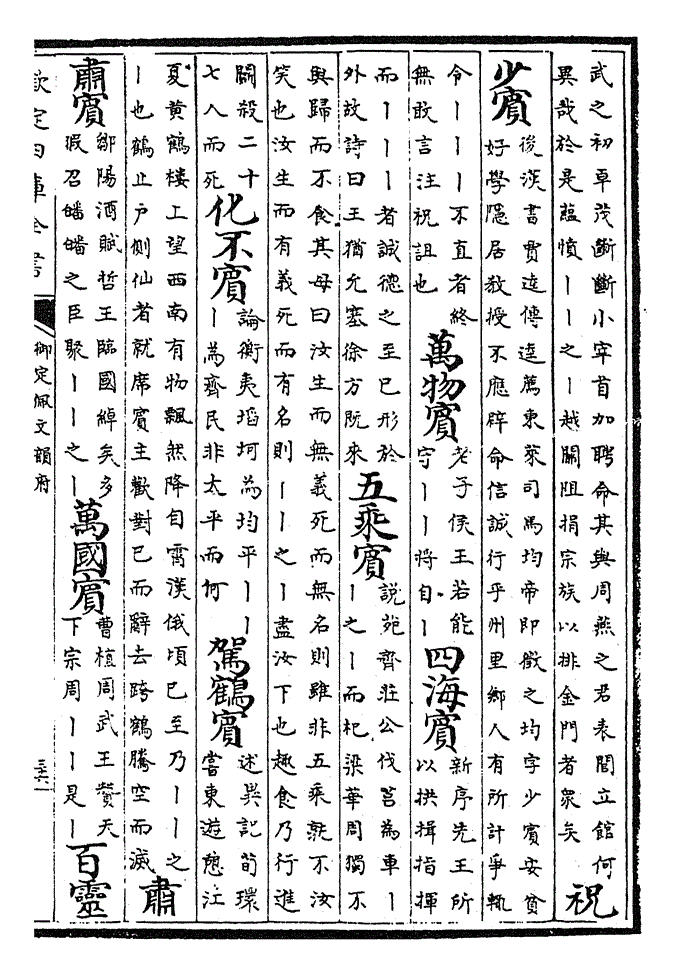 武之初卓茂斷斷小宰首加聘命其與周燕之君表閭立館何
異哉於是蘊憤丨丨之丨越關阻捐宗族以排金門者衆矣
祝
少賓
後漢書賈逵傳逵薦東萊司馬均帝即徵之均字少賓安貧
好學隱居教授不應辟命信誠行乎州里鄉人有所計爭輒
令丨丨丨不直者終
無敢言注祝詛也
萬物賓
老子侯王若能
守丨丨將自丨
四海賓
新序先王所
以拱揖指揮
而丨丨丨者誠德之至巳形於
外故詩曰王猶允塞徐方既來
五乘賓
說苑齊莊公伐莒為車丨
丨之丨而杞梁華周獨不
與歸而不食其母曰汝生而無義死而無名則雖非五乘孰不汝
笑也汝生而有義死而有名則丨丨之丨盡汝下也趣食乃行進
鬭殺二十
七人而死
化不賓
論衡夷塪坷為均平丨丨
丨為齊民非太平而何
駕鶴賓
述異記荀環
嘗東遊憩江
夏黃鶴樓上望西南有物飄然降自霄漢俄頃巳至乃丨丨之
丨也鶴止戶側仙者就席賓主歡對巳而辭去跨鶴騰空而滅
肅
肅賓
鄒陽酒賦哲王臨國綽矣多
暇召皤皤之臣聚丨丨之丨
萬國賓
曹植周武王贊天
下宗周丨丨是丨
百靈
欽定四庫全書
御定佩文韻府